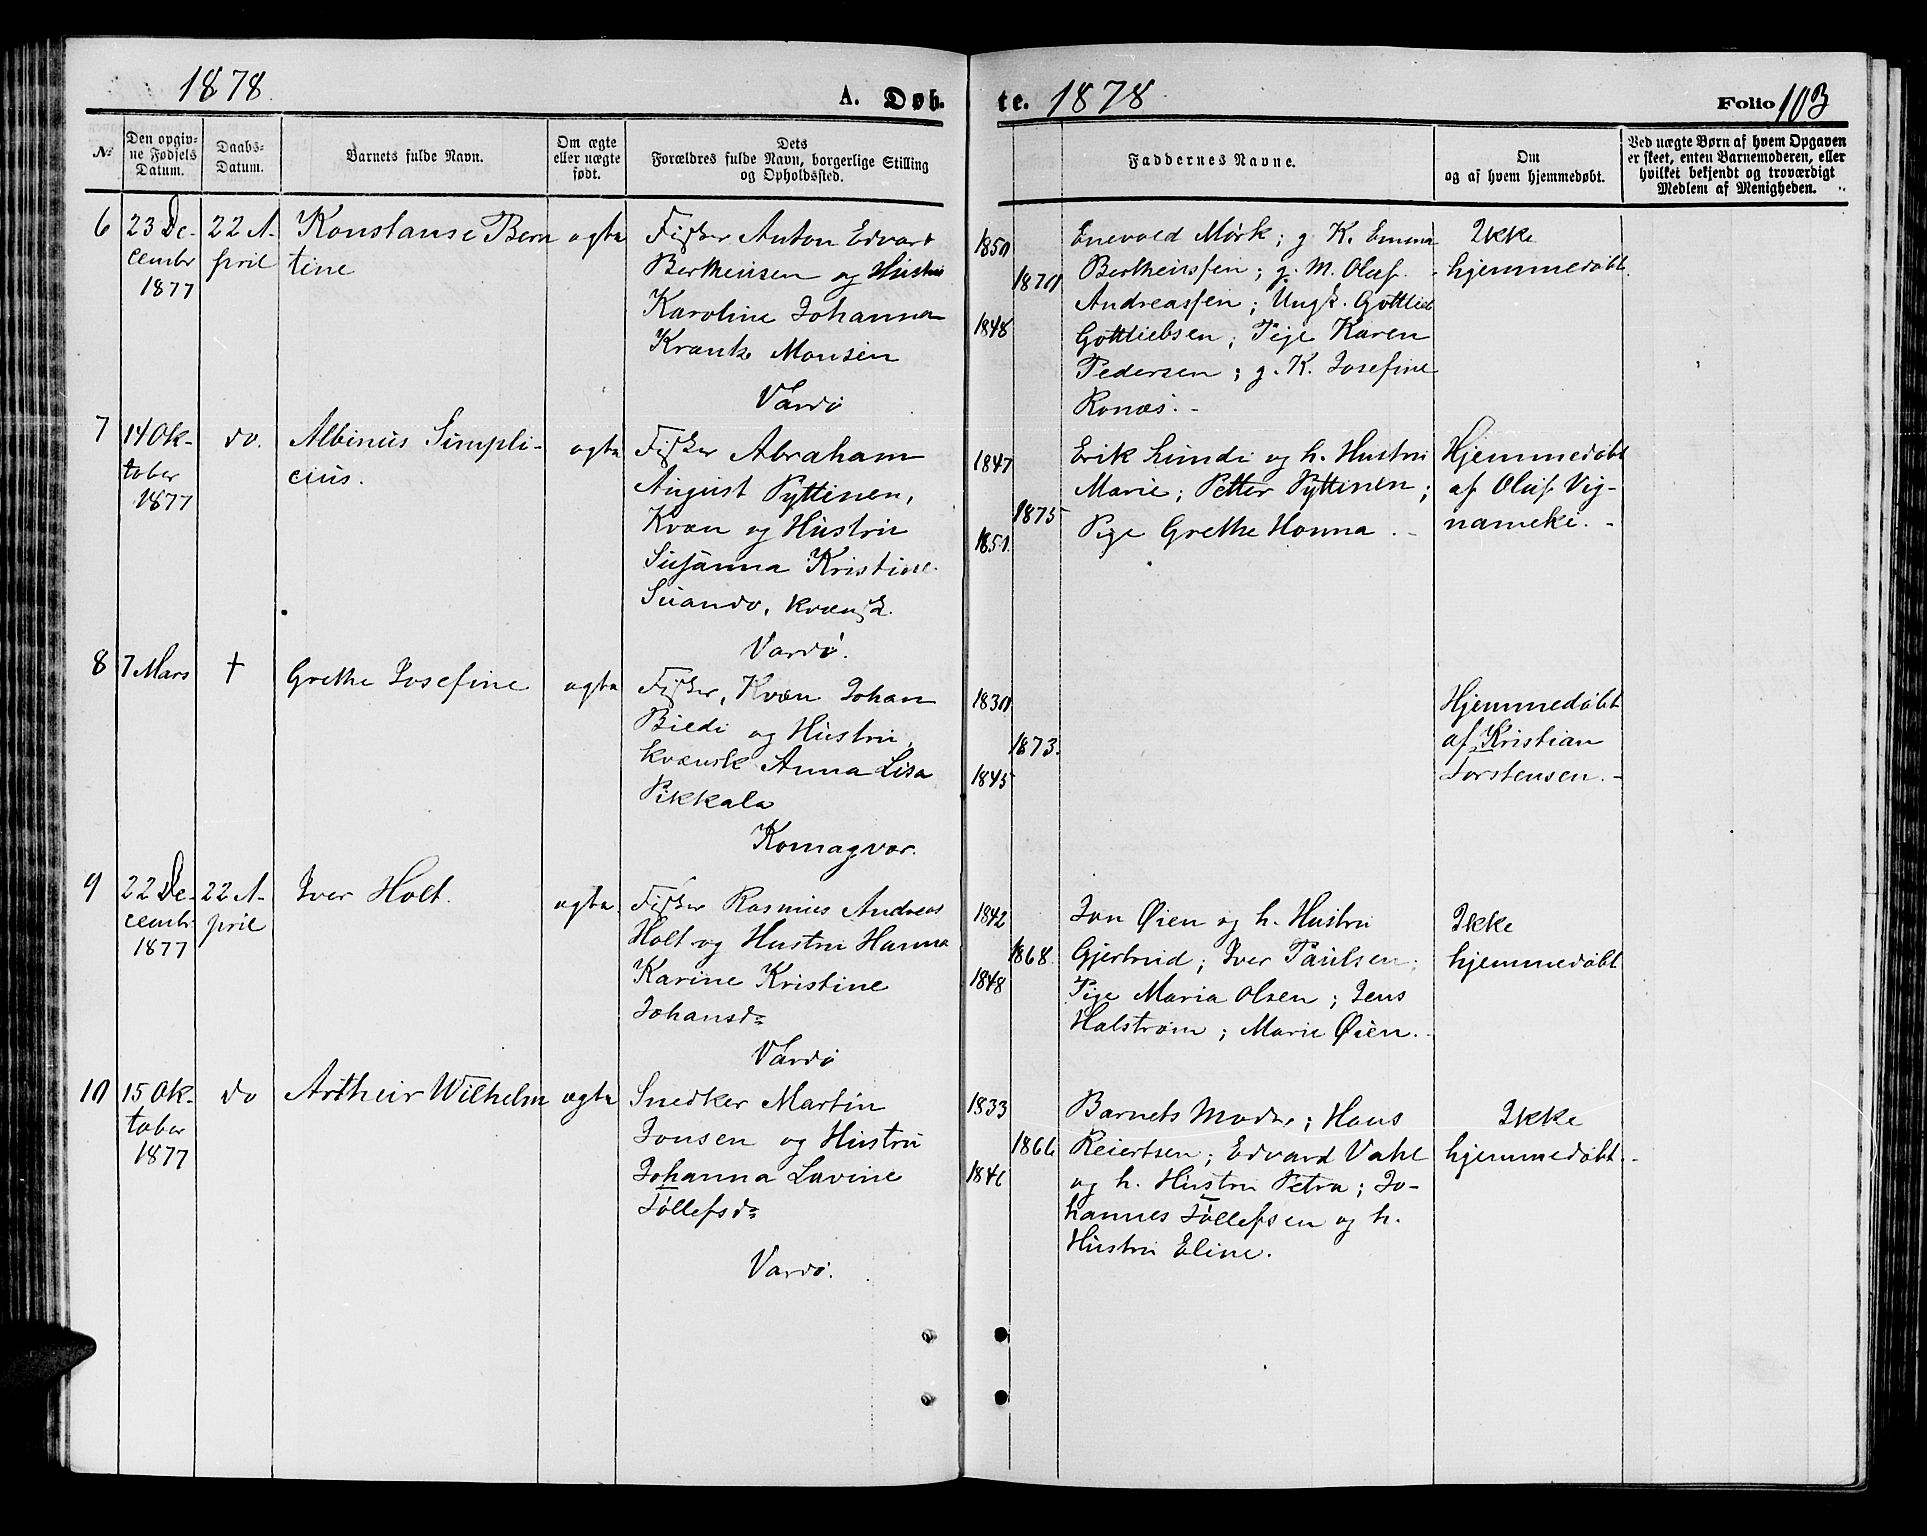 1878.
A. Døb-
te. 1878
Folio 103
№
Den opgiv-
ne Fødsels
Datum.
Daabs-
Datum.
Barnets fulde Navn.
Om ægte
eller uægte
født.
Dets
Forældres fulde Navn, borgerlige Stilling
og Opholdssted.
Faddernes Navne.
Om
og af hvem hjemmedøbt.
Ved uægte Børn af hvem Opgaven
er skeet, enten Barnemoderen, eller
hvilket bekjendt og troværdigt
Medlem af Menigheden.
6
23 De-
cembr
1877
22 A-
pril
Konstanse Bern
tine
ægte
Fisker Anton Edvart
Berthinsen og Hustru
Karoline Johanna
Krantz Monsen
Vardö
1850
1870
1848
Enevold Mörk; g. K. Emma
Berthinssen; g. M. Oluf
Andreassen; Ungk. Gottlieb
Gottliebsen; Pige Karen
Pedersen; g. K. Josefine
Ronæs. -
Ikke
hjemmedöbt.
7
14 Ok-
tober
1877
do.
Albinus Simpli-
cius.
ægte
Fisker Abraham
August Pyttinen,
Kvæn og Hustru
Susanna Kristine
Suando, kvænsk.
Vardö.
1847
1875
1850.
Erik Lundi og h. Hustru
Marie; Petter Pyttinen;
Pige Grethe Honna. -
Hjemmedöbt
af Oluf Vig-
nameki. -
8
7 Mars
†
Grethe Josefine
ægte
Fisker, Kvæn Johan
Biedi og Hustru,
kvænsk Anna Lisa
Pikkala
Komagvær.
1830
1873.
1845
Hjemmedöbt
af Kristian
Torstensen. -
9
22 De-
cembr
1877
22 A-
pril
Iver Holt.
ægte.
Fisker Rasmus Andreas
Holt og Hustru Hanna
Karine Kristine
Johansdr
Vardö
1842
1868.
1848
Jon Øien og h. Hustru
Gjertrud; Iver Paulsen;
Pige Maria Olsen; Jens
Halström; Marie Øien. -
Ikke
hjemmedöbt
10
15 Ok-
tober
1877
do
Arthur Wilhelm
ægte
Snedker Martin
Jonsen og Hustru
Johanna Lavine
Töllefsdr
Vardö.
1833
1866
1841
Barnets Moder; Hans
Reiertsen; Edvard Vahl
og h. Hustru Petra; Jo-
hannes Töllefsen og h.
Hustru Eline.
Ikke
hjemmedöbt. -